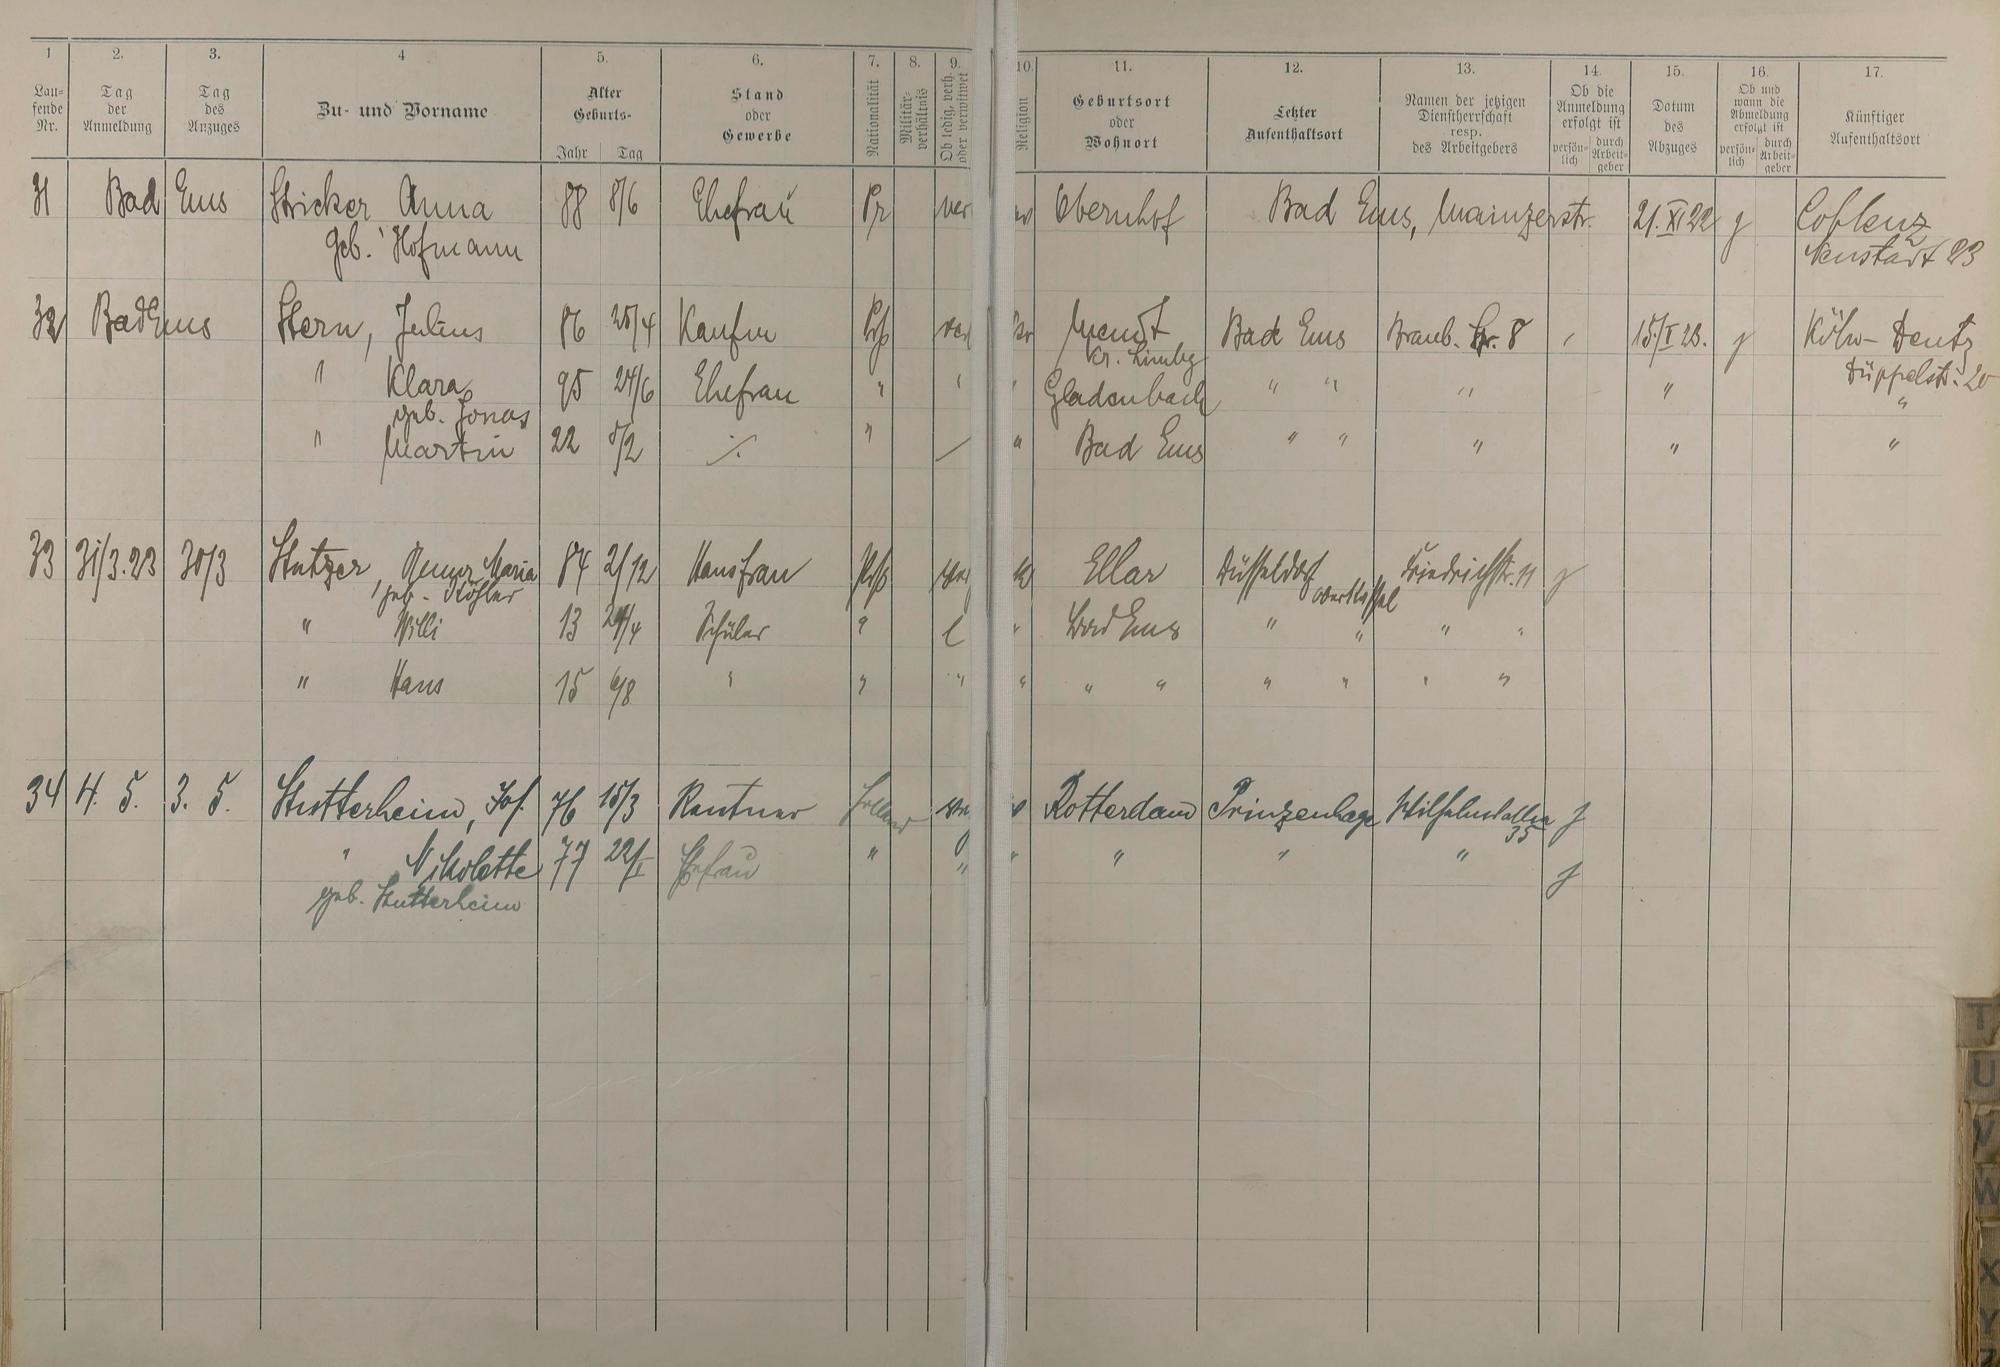 1 2. 3. 4 5. 6. 7. 8. 9. 10. 11. 12. 13. 14. 15. 16. 17.
Lau-
fende
Nr.
Tag
der
Anmeldung
Tag
des
Anzuges
Zu- und Vorname
Alter
Geburts-
Jahr Tag
Stand
oder
Gewerbe
Nationalität
Militär-
verhältnis
Ob ledig, verh.
oder verwitwet
Religion
Geburtsort
oder
Wohnort
Letzter
Aufenthaltsort
Namen der jetzigen
Dienstherrschaft
resp.
des Arbeitgebers
Ob die
Anmeldung
erfolgt ist
persön-
lich
durch
Arbeit-
geber
Datum
des
Abzuges
Ob und
wann die
Abmeldung
erfolgt ist
persön-
lich
durch
Arbeit-
geber
Künftiger
Aufenthaltsort
31 Bad Ems Stricker Anna 88 8/6 Ehefrau Pr ver Obernhof Bad Ems, Mainzerstr. 21. XI 22 Coblenz
geb. Hofmann Neustadt 23
32 Bad Ems Stern, Julius 86 25/4 Kaufm ver Bad Ems Braub. Str. 8 Köln-Deutz
Kr. Limbg Düppelstr. 20
" Klara 95 24/6 Ehefrau " " " Gladenbach " " " " "
geb. Jonas
" Martin 22 8/2 ⁒ " " Bad Ems " " " " "
33 31/3.23 30/3 Stutzer, Maria 84 2/12 Hausfrau Ellar Düsseldorf Friedrichstr. 11
geb. Köhler Oberkassel
" Willi 13 Schüler " l " Bad Ems " " " "
" Hans 15 6/8 " " " " " " " " " "
34 4. 5. 3. 5. Stutterheim, Jos. 76 15/3 Rentner Holland Rotterdam Prinzenhage Wilhelmsallee
35
" Nikolette 77 22/I Ehefrau " " " " " "
geb. Stutterheim
T
U
V
W
X
Y
Z